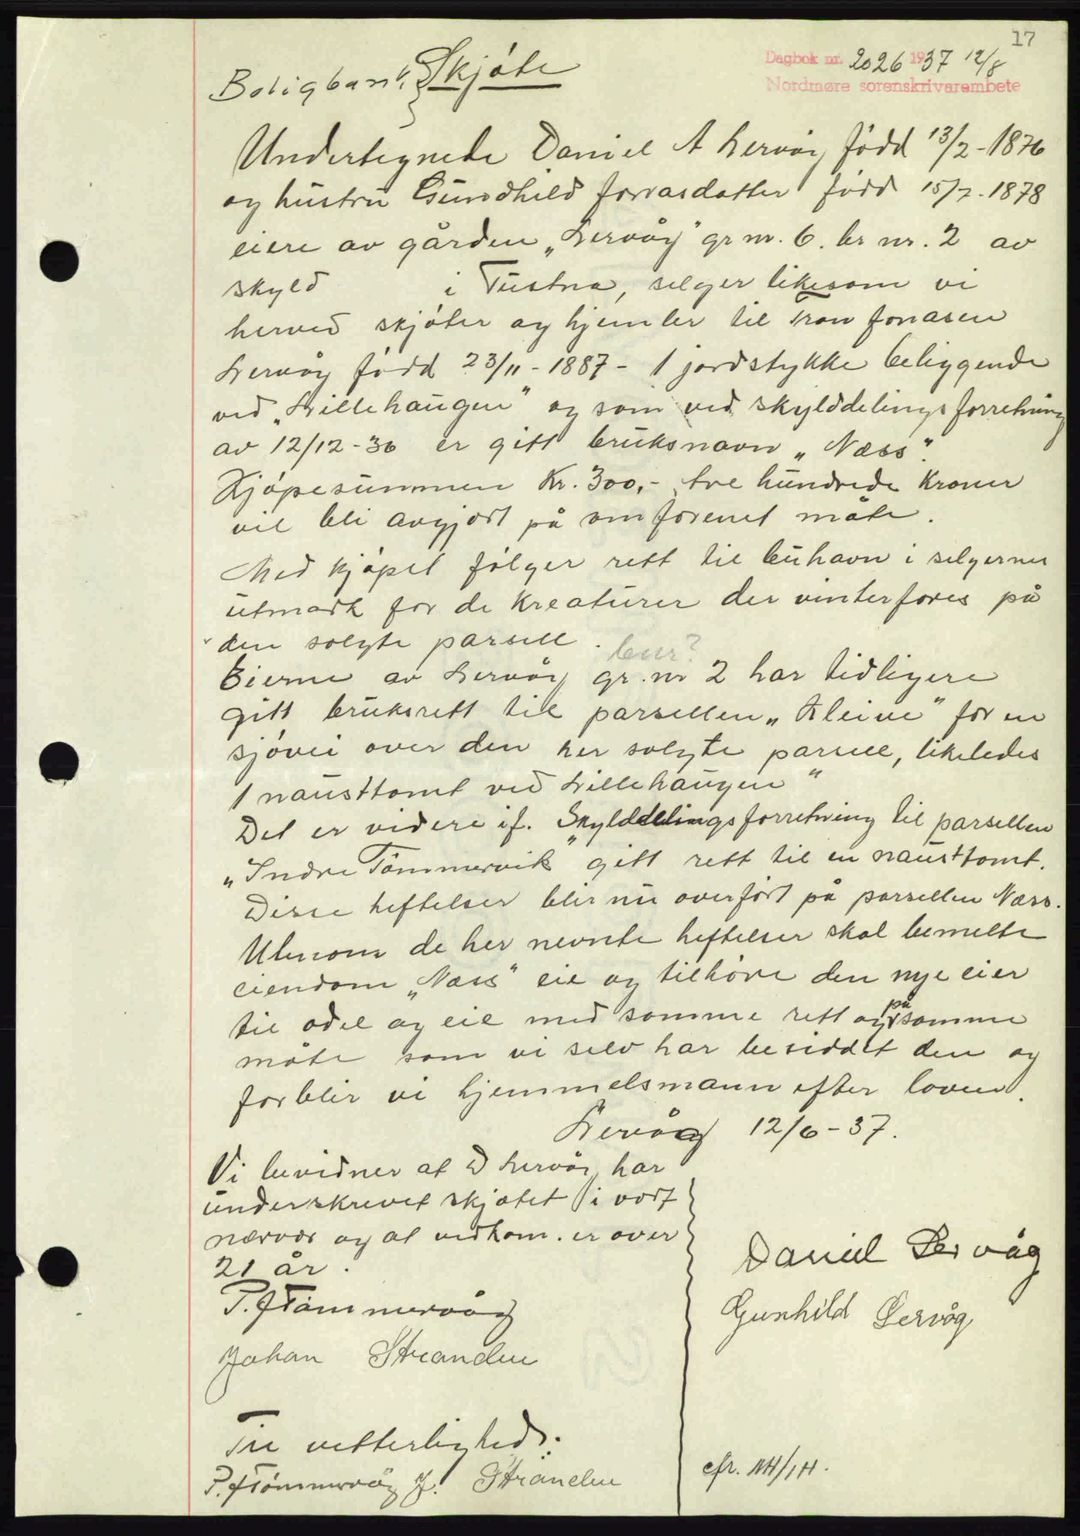 17
Dagbok nr. 2026 1937 12/8
Nordmøre sorenskriverembete
Boligbank. Skjøte
Undertegnede Daniel A Lervåg född 13/2-1876
og hustru Gundhild Jonasdatter född 15/7-1878
eiere av gården „Lervåg" gr nr. 6. br nr. 2 av
skyld i Tustna, selger likesom vi
herved skjøter og hjemler til Tron Jonasen
Lervåg född 23/11-1887- 1 jordstykke beliggende
ved „Lillehaugen" og som ved skylddelingsforretning
av 12/12-36 er gitt bruksnavn „Næss".
Kjøpesummen Kr. 300,- tre hundrede Kroner
vil bli avgjort på omforenet måte.
Med kjøpet følger rett til buhavn i selgernes
utmark for de Kreaturer der vinterfores på
den solgte parsell.
bnr?
Eierne av Lervåg gr. nr 2 har tidligere
gitt bruksrett til parsellen „Kleive" for en
sjøvei over den her solgte parsell, likeledes
1 nausttomt ved Lillehaugen"
Det er videre if. Skylddelingsforretning til parsellen
„Indre Tömmervik" gitt rett til en nausttomt.
Disse heftelser blir nu overført på parsellen Næss.
Utenom de her nevnte heftelser skal bemelte
eiendom „Næss" eie og tilhøre den nye eier
til odel og eie med samme rett og på samme
måte som vi selv har besiddet den og
forblir vi hjemmelsmann efter loven.
Lervåg 12/6-37.
Vi bevidner at D Lervåg har
underskrevet skjøtet i vort
nærvær og at vedkom. er over
21 år.
Daniel Lervåg
P. J Tömmervåg
Gunhild Lervåg
Johan Stranden
Til vitterlighed:
P. J Tömmervåg J. Stranden
cfr. NH/IH.